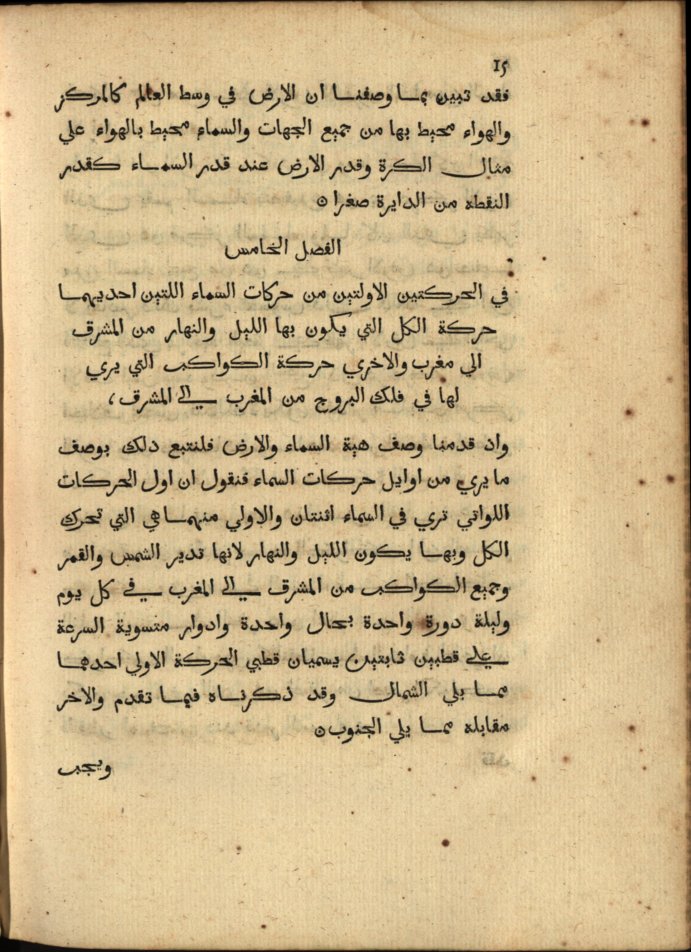 15
فقد تبين بما وصفنا ان الارض في وسط العالم كالمركز
والهواء محيط بها من جميع الجهات والسماء محيط بالهواء علي
مثال الكرة وقدر الارض عند قدر السماء كقدر
النقطه من الدايرة صغرا ٥
الفصل الخامس
في الحركتين الاولتين من حركات السماء اللتين احديهما
حركة الكل التي يكون بها الليل والنهار من المشرق
الي مغرب والاخري حركة الكواكب التي يري
لها في فلك البروج من المغرب الي المشرق ،
واذ قدمنا وصف هية السماء والارض فلنتبع دلك بوصف
ما يري من اوايل حركات السماء فنقول ان اول الحركات
اللواتي تري في السماء اثنتان والاولي منهما هي التي تحرك
الكل وبها يكون الليل والنهار لانها تدير الشمس والقمر
وجميع الكواكب من المشرق الي المغرب في كل يوم
وليلة دورة واحدة بحال واحدة وادوار متسوية السرعة
علي قطبين ثابتين يسميان قطبي الحركة الاولي احدها
مما يلي الشمال وقد ذكرناه فيما تقدم والاخر
مقابله مما يلي الجنوب ٥
ويجب